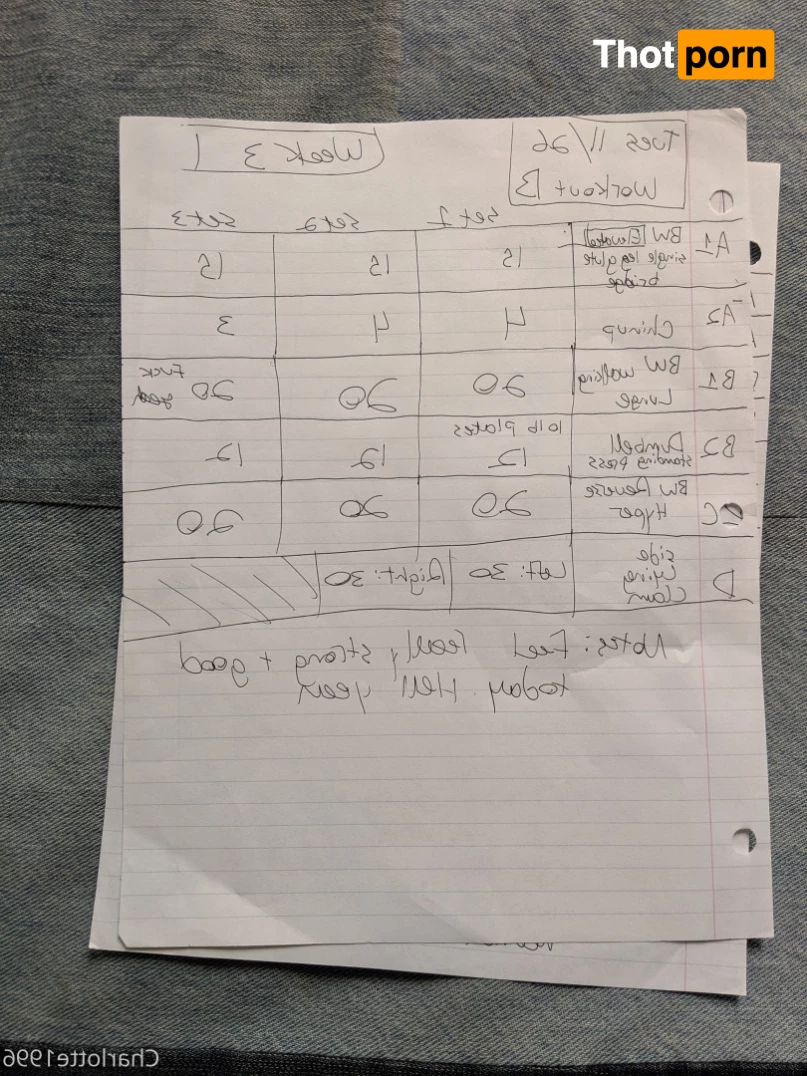 Thot porn
Tues 11/26
Workout B
Week 3
set 1 set 2 set 3
A1 BW Elevated single leg glute bridge 15 15 15
A2 Chinup 4 4 3
B1 BW walking Lunge 20 20 20 Fuck
B2 Dumbbell standing press 10 lb plates 12 12 12
C BW Reverse Hyper 20 20 20
D side lying clam Left: 30 Right: 30
Notes: Feel really strong + good
today. Hell yeah
Charlotte1996